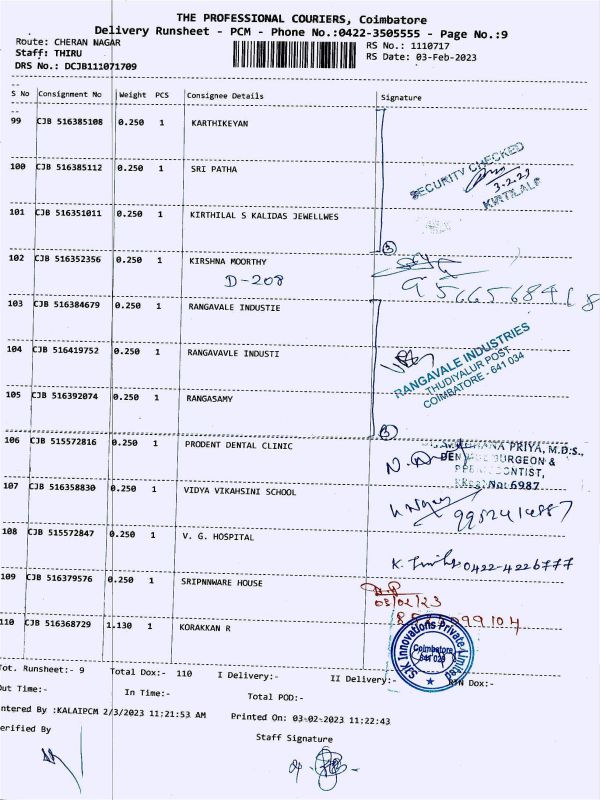 THE PROFESSIONAL COURIERS, Coimbatore
Delivery Runsheet - PCM - Phone No.:0422-3505555 - Page No.:9
Route: CHERAN NAGAR
RS No.: 1110717
Staff: THIRU
RS Date: 03-Feb-2023
DRS No.: DCJB111071709
S No Consignment No Weight PCS Consignee Details Signature
99 CJB 516385108 0.250 1 KARTHIKEYAN
100 CJB 516385112 0.250 1 SRI PATHA
SECURITY CHECKED
3.2.23
KIRTILALP
101 CJB 516351011 0.250 1 KIRTHILAL S KALIDAS JEWELLWES
3
102 CJB 516352356 0.250 1 KIRSHNA MOORTHY
D-208
9566568468
103 CJB 516384679 0.250 1 RANGAVALE INDUSTIE
104 CJB 516419752 0.250 1 RANGAVAVLE INDUSTI
RANGAVALE INDUSTRIES
THUDIYALUR POST
COIMBATORE - 641 034
105 CJB 516392074 0.250 1 RANGASAMY
3
106 CJB 515572816 0.250 1 PRODENT DENTAL CLINIC
PRIYA, M.D.S.,
SURGEON &
No: 6987
107 CJB 516358830 0.250 1 VIDYA VIKAHSINI SCHOOL
108 CJB 515572847 0.250 1 V. G. HOSPITAL
0422-4226777
109 CJB 516379576 0.250 1 SRIPNNWARE HOUSE
03/02/23
110 CJB 516368729 1.130 1 KORAKKAN R
SJK Innovations Private Limited
Coimbatore
641 029
Tot. Runsheet:- 9 Total Dox:- 110 I Delivery:- II Delivery:- Dox:-
Out Time:- In Time:- Total POD:-
ntered By :KALAIPCM 2/3/2023 11:21:53 AM Printed On: 03-02-2023 11:22:43
erified By
Staff Signature